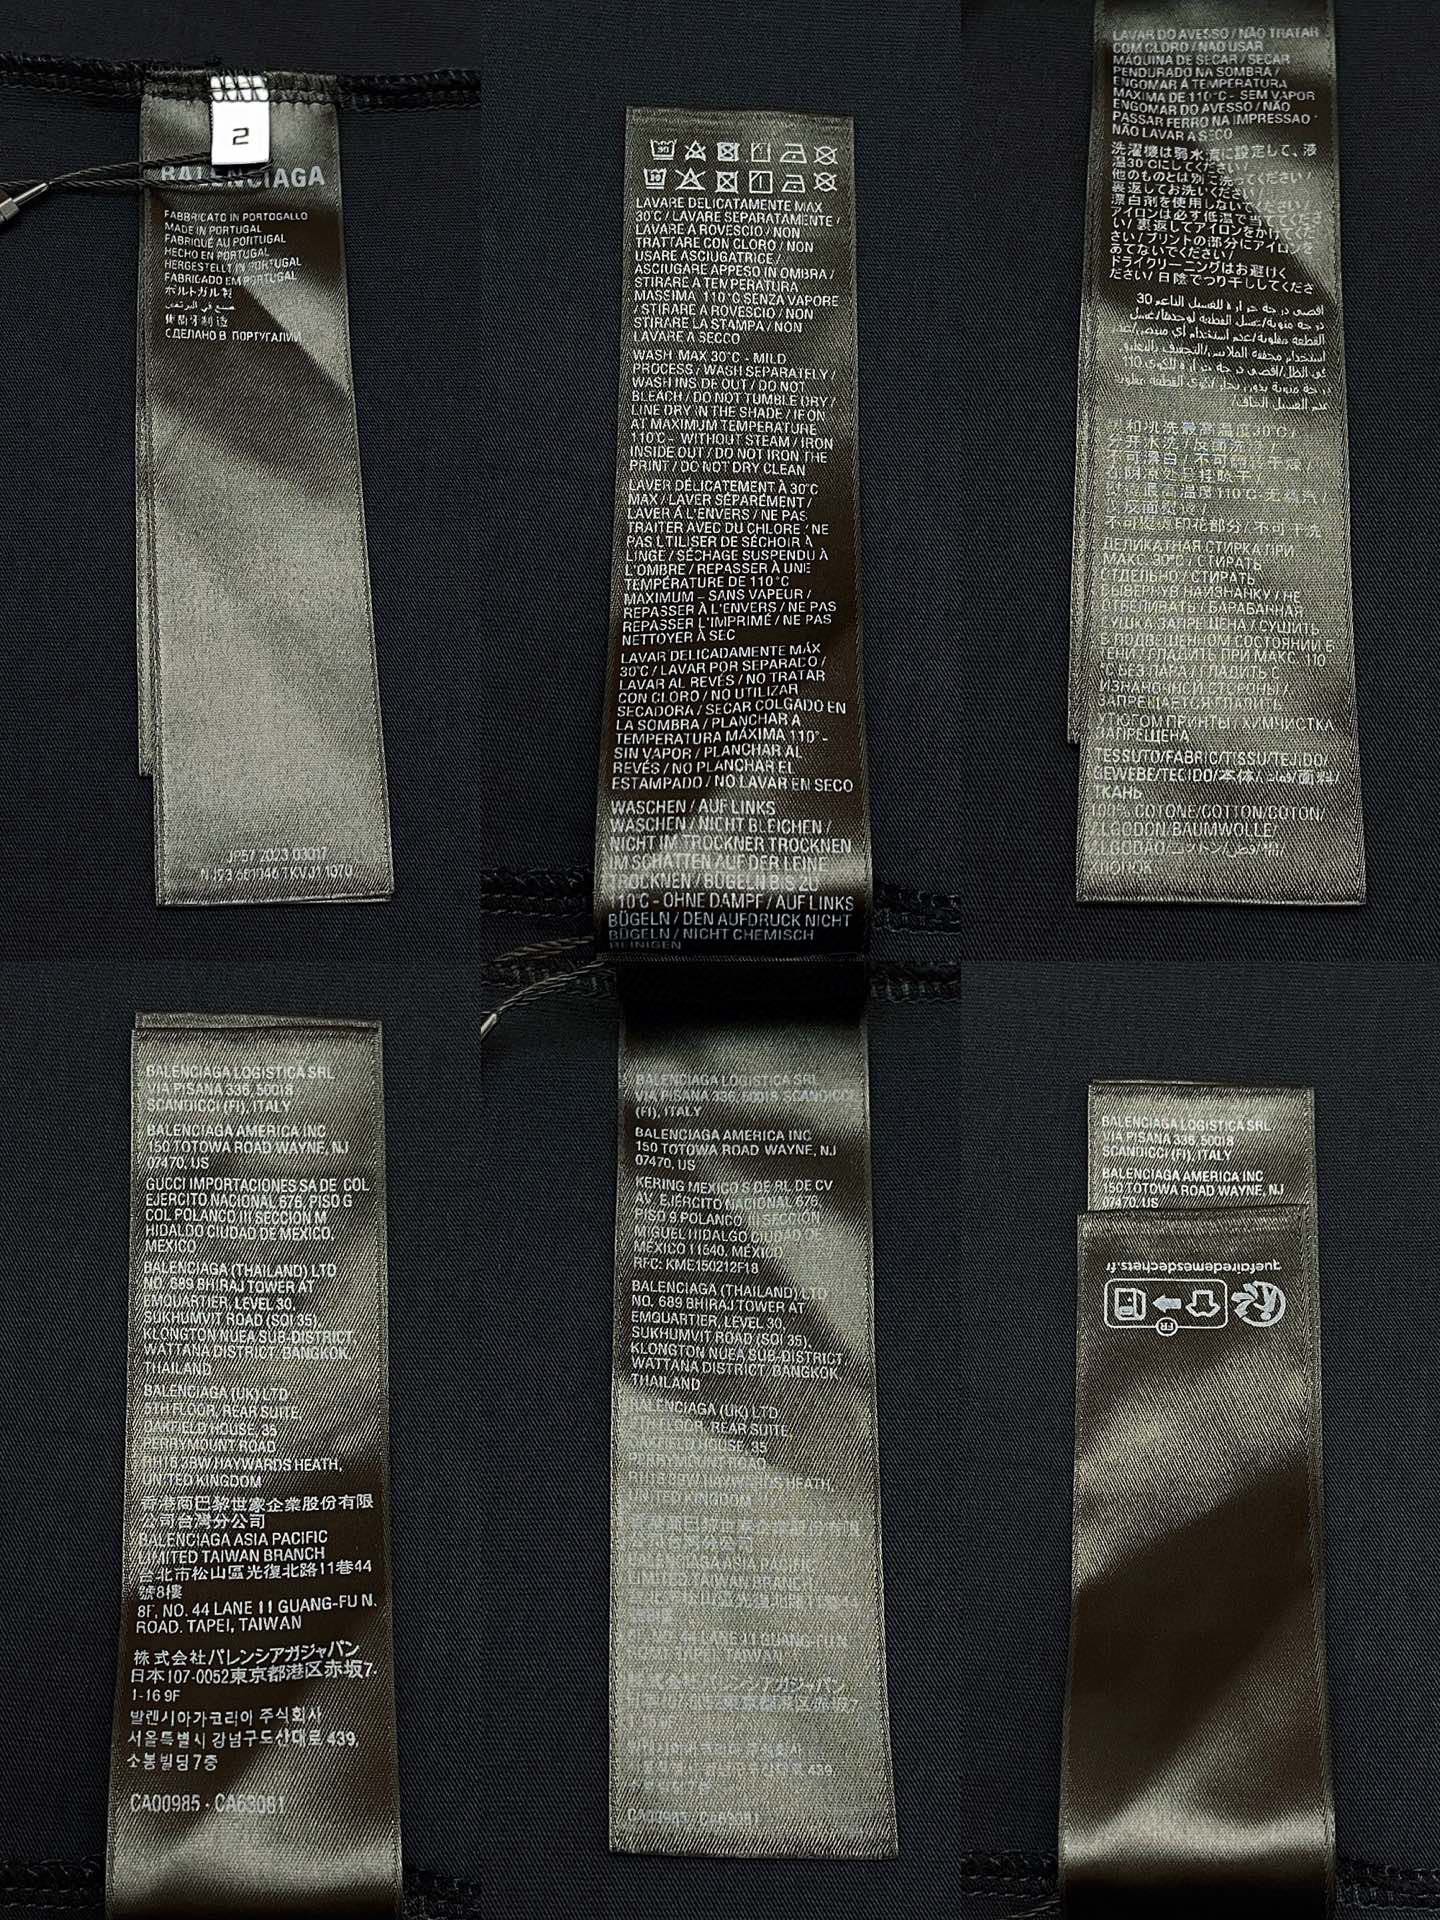 2
BALENCIAGA
FABBRICATO IN PORTOGALLO
MADE IN PORTUGAL
FABRIQUÉ AU PORTUGAL
HECHO EN PORTUGAL
HERGESTELLT IN PORTUGAL
FABRICADO EM PORTUGAL
ポルトガル製
صنع في البرتغال
葡萄牙制造
СДЕЛАНО В ПОРТУГАЛИИ
JP57 2023 03017
LAVARE DELICATAMENTE MAX
30°C / LAVARE SEPARATAMENTE /
LAVARE A ROVESCIO / NON
TRATTARE CON CLORO / NON
USARE ASCIUGATRICE /
ASCIUGARE APPESO IN OMBRA /
STIRARE A TEMPERATURA
MASSIMA 110°C SENZA VAPORE
/ STIRARE A ROVESCIO / NON
STIRARE LA STAMPA / NON
LAVARE A SECCO
WASH MAX 30°C - MILD
PROCESS / WASH SEPARATELY /
WASH INSIDE OUT / DO NOT
BLEACH / DO NOT TUMBLE DRY /
LINE DRY IN THE SHADE / IRON
AT MAXIMUM TEMPERATURE
110°C - WITHOUT STEAM / IRON
INSIDE OUT / DO NOT IRON THE
PRINT / DO NOT DRY CLEAN
LAVER DÉLICATEMENT À 30°C
MAX / LAVER SÉPARÉMENT /
LAVER À L'ENVERS / NE PAS
TRAITER AVEC DU CHLORE / NE
PAS UTILISER DE SÉCHOIR À
LINGE / SÉCHAGE SUSPENDU À
L'OMBRE / REPASSER À UNE
TEMPÉRATURE DE 110°C
MAXIMUM - SANS VAPEUR /
REPASSER À L'ENVERS / NE PAS
REPASSER L'IMPRIMÉ / NE PAS
NETTOYER À SEC
LAVAR DELICADAMENTE MÁX
30°C / LAVAR POR SEPARADO /
LAVAR AL REVÉS / NO TRATAR
CON CLORO / NO UTILIZAR
SECADORA / SECAR COLGADO EN
LA SOMBRA / PLANCHAR A
TEMPERATURA MÁXIMA 110° -
SIN VAPOR / PLANCHAR AL
REVÉS / NO PLANCHAR EL
ESTAMPADO / NO LAVAR EN SECO
WASCHEN / AUF LINKS
WASCHEN / NICHT BLEICHEN /
NICHT IM TROCKNER TROCKNEN
IM SCHATTEN AUF DER LEINE
TROCKNEN / BÜGELN BIS ZU
110°C - OHNE DAMPF / AUF LINKS
BÜGELN / DEN AUFDRUCK NICHT
BÜGELN / NICHT CHEMISCH
REINIGEN
LAVAR DO AVESSO / NÃO TRATAR
COM CLORO / NÃO USAR
MÁQUINA DE SECAR / SECAR
PENDURADO NA SOMBRA /
ENGOMAR À TEMPERATURA
MÁXIMA DE 110°C - SEM VAPOR
ENGOMAR DO AVESSO / NÃO
PASSAR FERRO NA IMPRESSÃO
NÃO LAVAR A SECO
洗濯機は弱水流に設定して、液
温30℃にしてください/
他のものとは別に洗ってください/
裏返してお洗いください/
漂白剤を使用しないでください/
アイロンは必ず低温で当ててくださ
い/ 裏返してアイロンをかけてくだ
さい/プリントの部分にアイロンを
あてないでください/
ドライクリーニングはお避けく
ださい/ 日陰でつり干ししてくださ
اقصى درجة حرارة للغسيل الناعم 30
درجة مئوية/غسل القطعة لوحدها/غسل
القطعة مقلوبة/عدم استخدام أي مبيض/عدم
استخدام مجففة الملابس/التجفيف بالتعليق
في الظل/اقصى درجة حرارة للكوي 110
درجة مئوية بدون بخار/كوي القطعة مقلوبة
عدم الغسيل الجاف/
缓和洗涤最高温度30℃/
分开水洗/反面洗涤/
不可漂白/不可翻转干燥/
在阴凉处悬挂晾干/
熨烫最高温度110℃-无蒸汽/
反面熨烫/
不可熨烫印花部分/不可干洗
ДЕЛИКАТНАЯ СТИРКА ПРИ
МАКС. 30°C / СТИРАТЬ
ОТДЕЛЬНО / СТИРАТЬ
ВЫВЕРНУВ НАИЗНАНКУ / НЕ
ОТБЕЛИВАТЬ / БАРАБАННАЯ
СУШКА ЗАПРЕЩЕНА / СУШИТЬ
В ПОДВЕШЕННОМ СОСТОЯНИИ В
ТЕНИ / ГЛАДИТЬ ПРИ МАКС. 110
°C БЕЗ ПАРА / ГЛАДИТЬ С
ИЗНАНОЧНОЙ СТОРОНЫ /
ЗАПРЕЩАЕТСЯ ГЛАДИТЬ
УТЮГОМ ПРИНТЫ / ХИМЧИСТКА
ЗАПРЕЩЕНА
TESSUTO/FABRIC/TISSU/TEJIDO/
GEWEBE/TECIDO/本体/قماش/面料/
ТКАНЬ
100% COTONE/COTTON/COTON/
ALGODÓN/BAUMWOLLE/
ALGODÃO/コットン/قطن/棉/
ХЛОПОК
BALENCIAGA LOGISTICA SRL
VIA PISANA 336, 50018
SCANDICCI (FI), ITALY
BALENCIAGA AMERICA INC
150 TOTOWA ROAD WAYNE, NJ
07470, US
GUCCI IMPORTACIONES SA DE COL
EJERCITO NACIONAL 676, PISO G
COL POLANCO III SECCION M
HIDALDO CIUDAD DE MEXICO,
MEXICO
BALENCIAGA (THAILAND) LTD
NO. 689 BHIRAJ TOWER AT
EMQUARTIER, LEVEL 30,
SUKHUMVIT ROAD (SOI 35),
KLONGTON NUEA SUB-DISTRICT,
WATTANA DISTRICT, BANGKOK,
THAILAND
BALENCIAGA (UK) LTD
5TH FLOOR, REAR SUITE,
OAKFIELD HOUSE, 35
PERRYMOUNT ROAD
RH16 3BW HAYWARDS HEATH,
UNITED KINGDOM
香港商巴黎世家企業股份有限
公司台灣分公司
BALENCIAGA ASIA PACIFIC
LIMITED TAIWAN BRANCH
台北市松山區光復北路11巷44
號8樓
8F, NO. 44 LANE 11 GUANG-FU N.
ROAD. TAPEI, TAIWAN
株式会社バレンシアガジャパン
日本107-0052東京都港区赤坂7-
1-16 9F
발렌시아가코리아 주식회사
서울특별시 강남구도산대로 439,
소봉빌딩7층
CA00985 - CA63081
BALENCIAGA LOGISTICA SRL
VIA PISANA 336, 50018 SCANDICCI
(FI), ITALY
BALENCIAGA AMERICA INC
150 TOTOWA ROAD WAYNE, NJ
07470, US
KERING MEXICO S DE RL DE CV
AV. EJÉRCITO NACIONAL 676,
PISO 9 POLANCO III SECCIÓN
MIGUEL HIDALGO CIUDAD DE
MÉXICO 11540, MÉXICO
RFC: KME150212F18
BALENCIAGA (THAILAND) LTD
NO. 689 BHIRAJ TOWER AT
EMQUARTIER, LEVEL 30,
SUKHUMVIT ROAD (SOI 35),
KLONGTON NUEA SUB-DISTRICT,
WATTANA DISTRICT, BANGKOK,
THAILAND
BALENCIAGA (UK) LTD
5TH FLOOR, REAR SUITE,
OAKFIELD HOUSE, 35
PERRYMOUNT ROAD
RH16 3BW HAYWARDS HEATH,
UNITED KINGDOM
BALENCIAGA ASIA PACIFIC
LIMITED TAIWAN BRANCH
NO. 44 LANE 11 GUANG-FU N.
ROAD. TAPEI, TAIWAN
CA00985 - CA63081
BALENCIAGA LOGISTICA SRL
VIA PISANA 336, 50018
SCANDICCI (FI), ITALY
BALENCIAGA AMERICA INC
150 TOTOWA ROAD WAYNE, NJ
07470, US
quefairedemesdechets.fr
FR